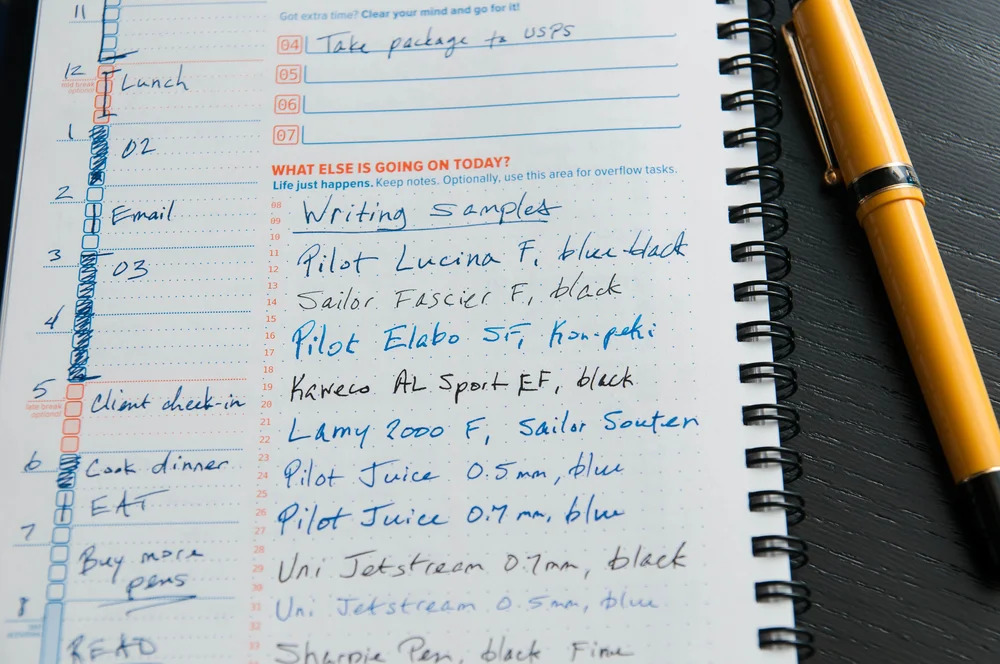 11
12
mid break
optional!
Lunch
1
02
2
Email
3
03
4
5
late break
optional!
Client check-in
6
Cook dinner
EAT
7
Buy more
pens
8
READ
Got extra time? Clear your mind and go for it!
04 Take package to USPS
05
06
07
WHAT ELSE IS GOING ON TODAY?
Life just happens. Keep notes. Optionally, use this area for overflow tasks.
08
09 Writing samples
10
11
12 Pilot Lucina F, blue-black
13
14 Sailor Fascier F, black
15
16 Pilot Elabo SF, Kon-peki
17
18
19 Kaweco AL Sport EF, black
20
21
22 Lamy 2000 F, Sailor Souten
23
24 Pilot Juice 0.5mm, blue
25
26
27 Pilot Juice 0.7 mm, blue
28
29 Uni Jetstream 0.7mm, black
30
31 Uni Jetstream 0.5mm, blue
32
33 Sharpie Pen, black Fine